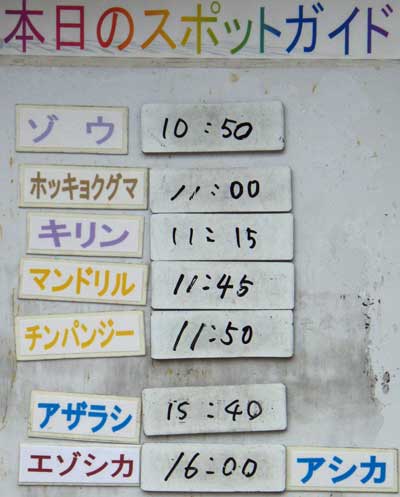 本日のスポットガイド
ゾウ 10:50
ホッキョクグマ 11:00
キリン 11:15
マンドリル 11:45
チンパンジー 11:50
アザラシ 15:40
エゾシカ 16:00 アシカ